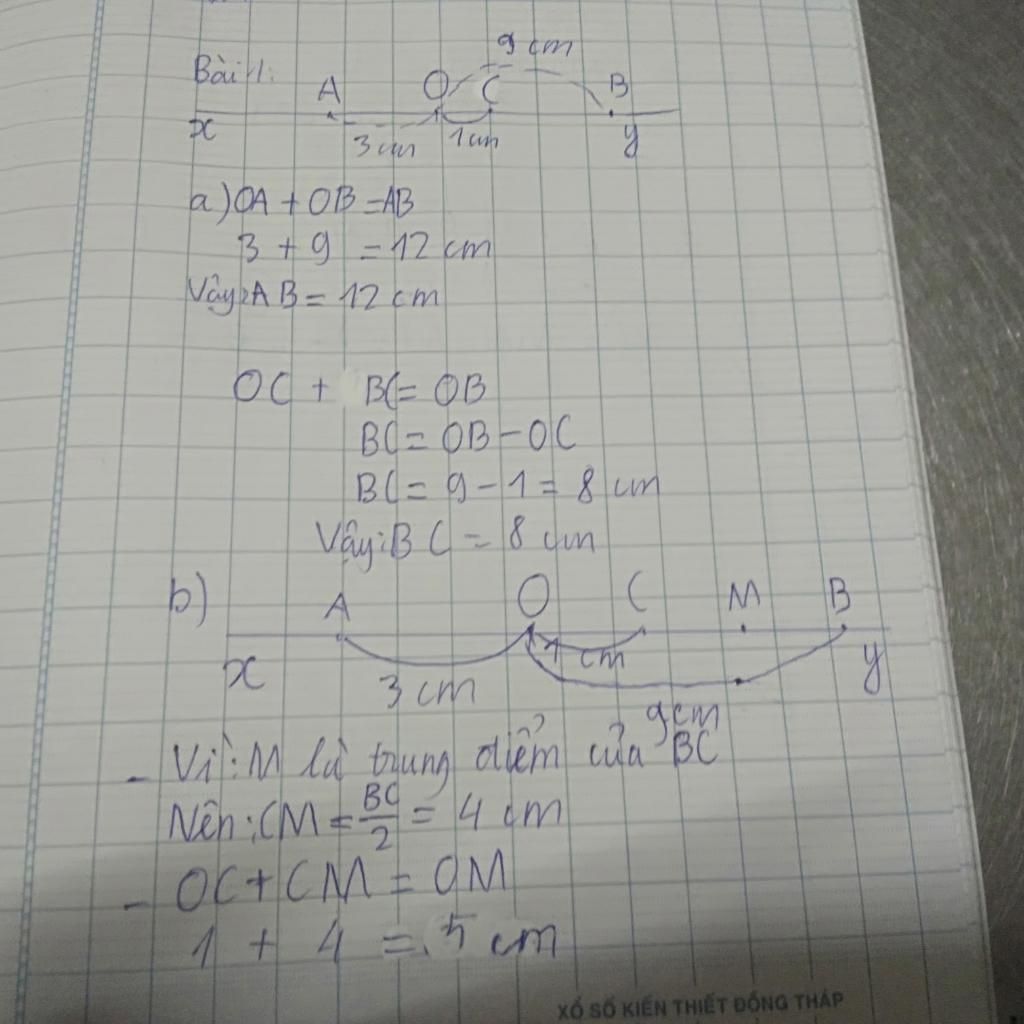 Bài 1:
9 cm
A O C B
x 3 cm 1 cm y
a) OA + OB = AB
3 + 9 = 12 cm
Vây: AB = 12 cm
OC + BC = OB
BC = OB - OC
BC = 9 - 1 = 8 cm
Vậy: BC = 8 cm
b) A O C M B
x 3 cm 1 cm y
9cm
- Vì: M là trung điểm của BC
Nên: CM = BC/2 = 4 cm
- OC + CM = OM
1 + 4 = 5 cm
XỔ SỐ KIẾN THIẾT ĐỒNG THÁP